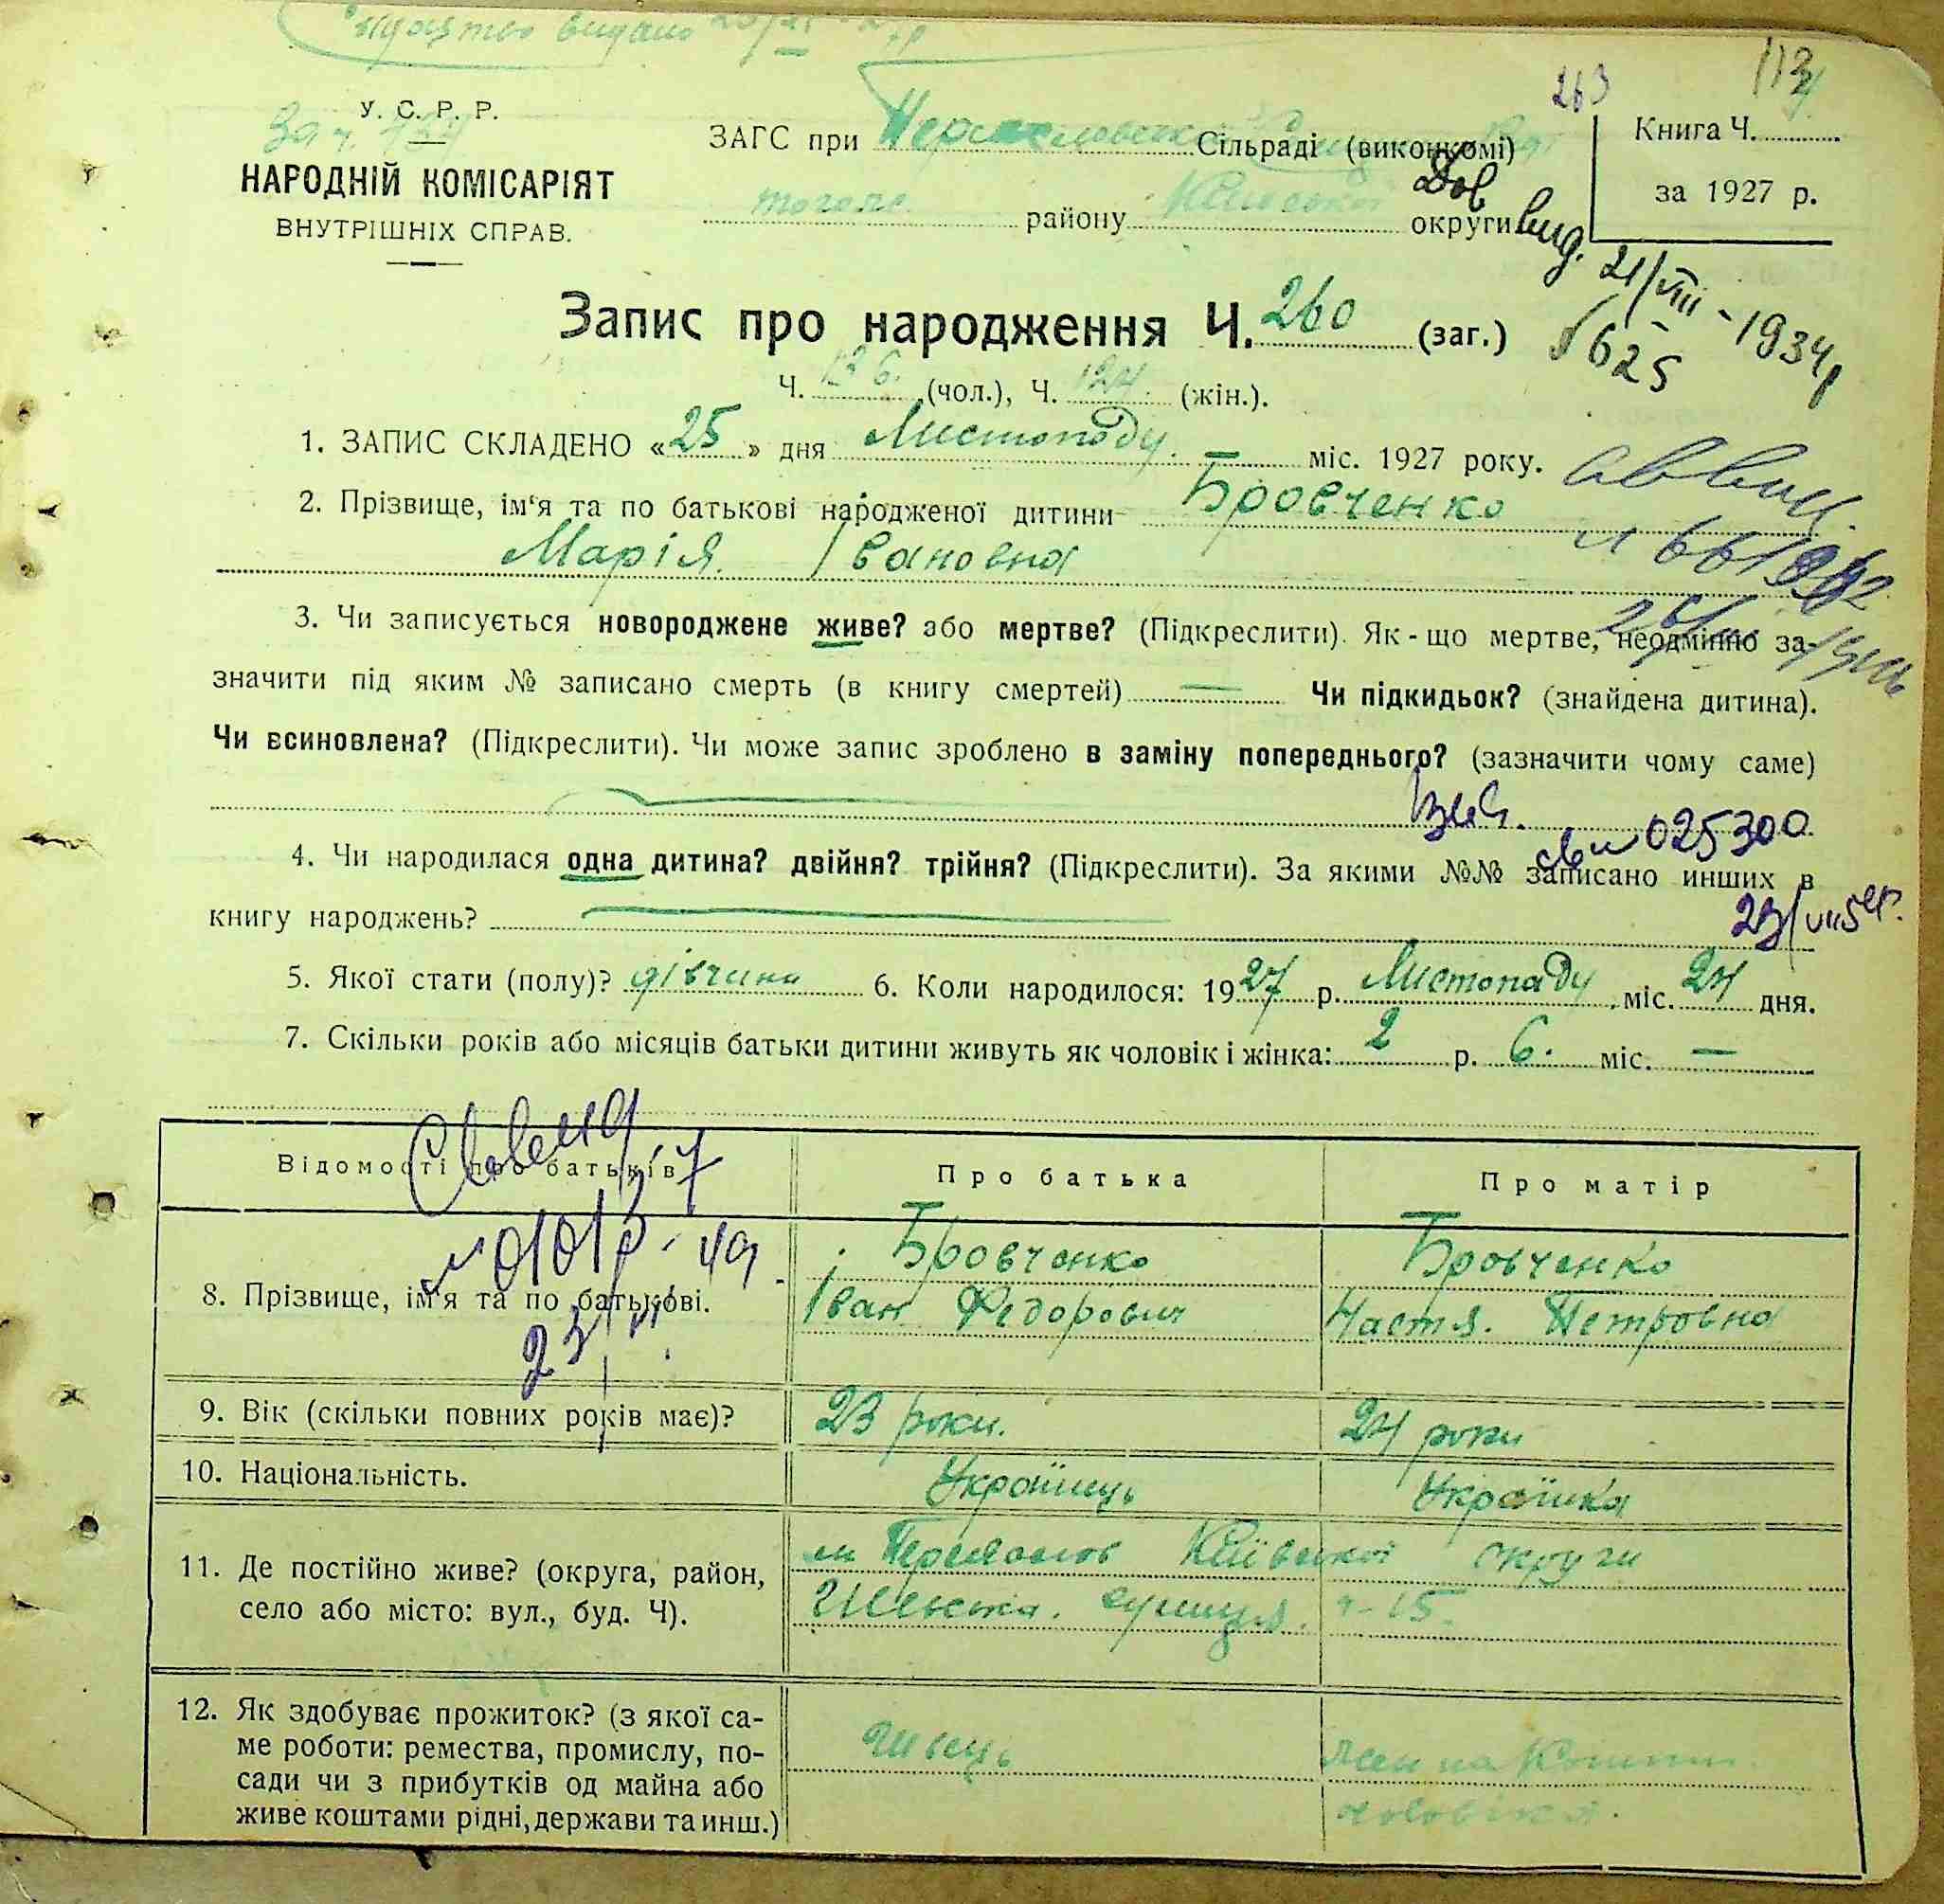 видано
263
113
У. С. Р. Р.
НАРОДНІЙ КОМІСАРІЯТ
ВНУТРІШНІХ СПРАВ.
ЗАГС при Сільраді (виконкомі)
району округи
Книга Ч.
за 1927 р.
Дов
вид. 21/VIII - 1934р
№625
Запис про народження Ч. 260 (заг.)
Ч. 136. (чол.), Ч. 124. (жін.).
1. ЗАПИС СКЛАДЕНО «25» дня Листопаду. міс. 1927 року.
2. Прізвище, ім'я та по батькові народженої дитини Бровченко
Марія. Івановна
3. Чи записується новороджене живе? або мертве? (Підкреслити). Як-що мертве, неодмінно за-
значити під яким № записано смерть (в книгу смертей) — Чи підкидьок? (знайдена дитина).
Чи всиновлена? (Підкреслити). Чи може запис зроблено в заміну попереднього? (зазначити чому саме)
025300
4. Чи народилася одна дитина? двійня? трійня? (Підкреслити). За якими №№ записано инших в
книгу народжень?
5. Якої стати (полу)? дівчина 6. Коли народилося: 1927 р. Листопаду міс. 24 дня.
7. Скільки років або місяців батьки дитини живуть як чоловік і жінка: 2 р. 6. міс. —
Відомості про батьків
Про батька
Про матір
8. Прізвище, ім'я та по батькові.
Бровченко
Іван Федорович
Бровченко
Настя. Петровна
9. Вік (скільки повних років має)?
23 роки.
24 роки
10. Національність.
Українець
Українка
11. Де постійно живе? (округа, район,
село або місто: вул., буд. Ч).
м Переяслов Київської округи
вулиця. ч-15.
12. Як здобуває прожиток? (з якої са-
ме роботи: ремества, промислу, по-
сади чи з прибутків од майна або
живе коштами рідні, держави та инш.)
швець
на кошти
чоловіка.